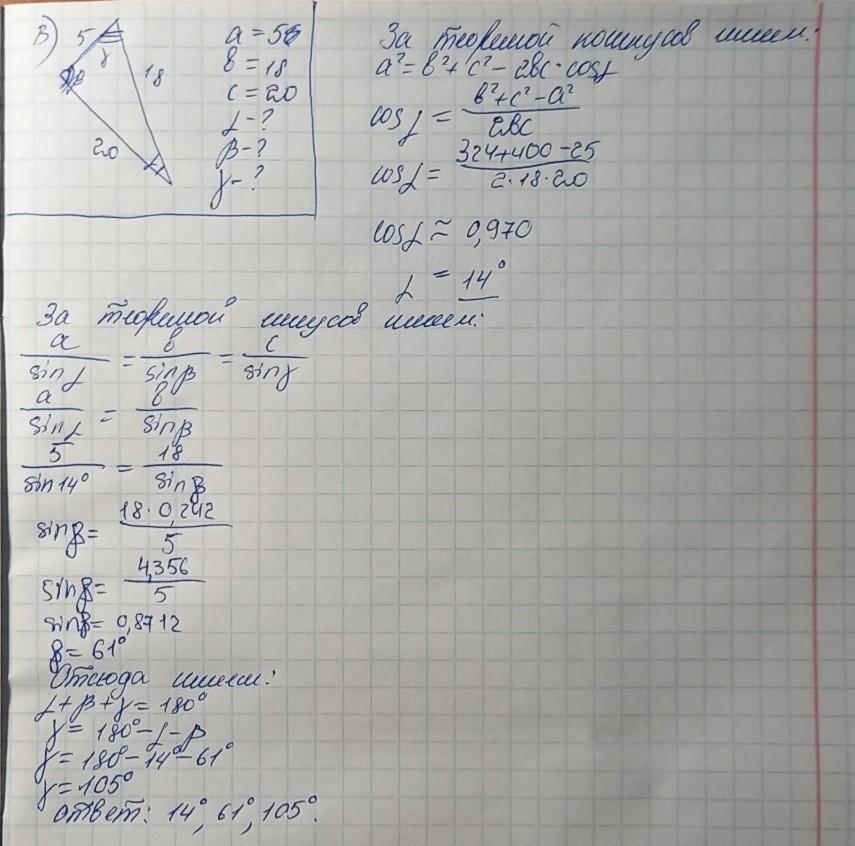 В) 5 γ 18 20 β
a = 5
b = 18
c = 20
α - ?
β - ?
γ - ?
За теоремой косинусов имеем:
a² = b² + c² - 2bc · cosα
cosα = (b² + c² - a²) / 2bc
cosα = (324 + 400 - 25) / 2·18·20
cosα ≈ 0,970
α = 14°
За теоремой синусов имеем:
a / sinα = b / sinβ = c / sinγ
a / sinα = b / sinβ
5 / sin14° = 18 / sinβ
sinβ = 18 · 0,242 / 5
sinβ = 4,356 / 5
sinβ = 0,8712
β = 61°
Отсюда имеем:
α + β + γ = 180°
γ = 180° - α - β
γ = 180° - 14° - 61°
γ = 105°
Ответ: 14°, 61°, 105°.